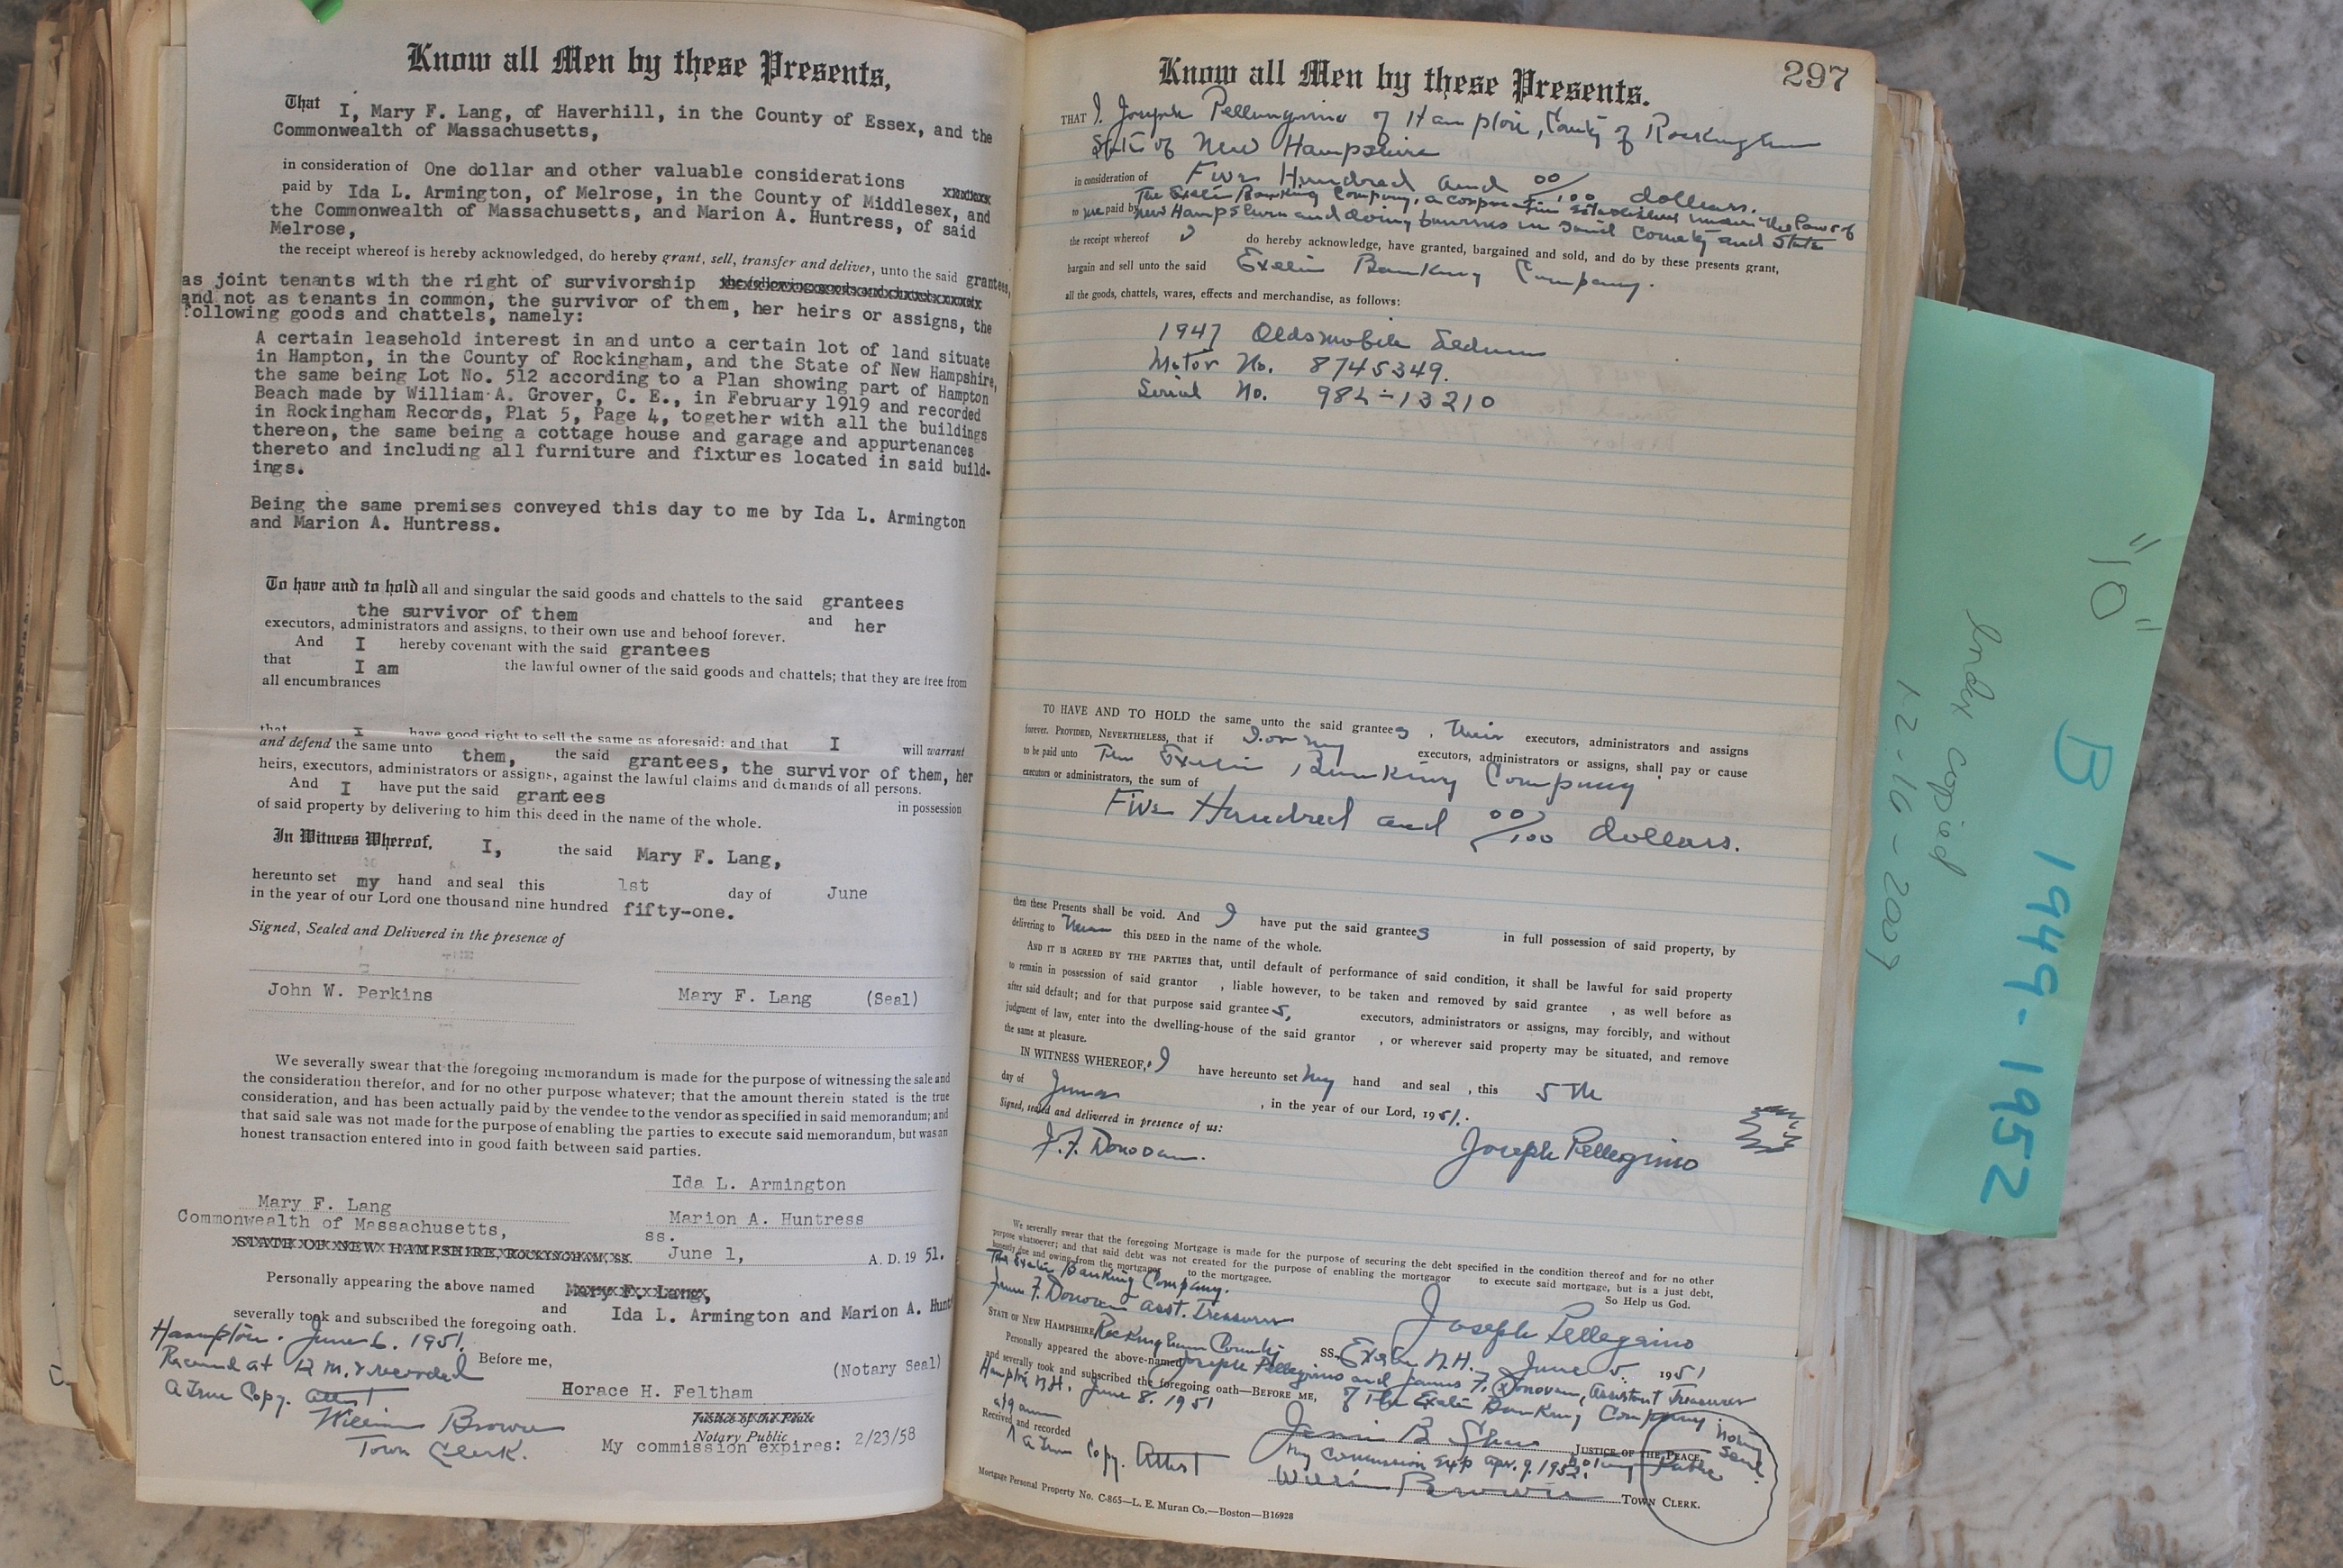 Know all Men by these Presents,
That I, Mary F. Lang, of Haverhill, in the County of Essex, and the
Commonwealth of Massachusetts,
in consideration of One dollar and other valuable considerations
paid by Ida L. Armington, of Melrose, in the County of Middlesex, and
the Commonwealth of Massachusetts, and Marion A. Huntress, of said
Melrose,
the receipt whereof is hereby acknowledged, do hereby grant, sell, transfer and deliver, unto the said grantees,
as joint tenants with the right of survivorship
and not as tenants in common, the survivor of them, her heirs or assigns, the
following goods and chattels, namely:
A certain leasehold interest in and unto a certain lot of land situate
in Hampton, in the County of Rockingham, and the State of New Hampshire,
the same being Lot No. 512 according to a Plan showing part of Hampton
Beach made by William A. Grover, C. E., in February 1919 and recorded
in Rockingham Records, Plat 5, Page 4, together with all the buildings
thereon, the same being a cottage house and garage and appurtenances
thereto and including all furniture and fixtures located in said build-
ings.
Being the same premises conveyed this day to me by Ida L. Armington
and Marion A. Huntress.
To have and to hold all and singular the said goods and chattels to the said grantees
the survivor of them and her
executors, administrators and assigns, to their own use and behoof forever.
And I hereby covenant with the said grantees
that I am the lawful owner of the said goods and chattels; that they are free from
all encumbrances
that I have good right to sell the same as aforesaid; and that I will warrant
and defend the same unto them, the said grantees, the survivor of them, her
heirs, executors, administrators or assigns, against the lawful claims and demands of all persons.
And I have put the said grantees in possession
of said property by delivering to him this deed in the name of the whole.
In Witness Whereof, I, the said Mary F. Lang,
hereunto set my hand and seal this 1st day of June
in the year of our Lord one thousand nine hundred fifty-one.
Signed, Sealed and Delivered in the presence of
John W. Perkins Mary F. Lang (Seal)
We severally swear that the foregoing memorandum is made for the purpose of witnessing the sale and
the consideration therefor, and for no other purpose whatever; that the amount therein stated is the true
consideration, and has been actually paid by the vendee to the vendor as specified in said memorandum; and
that said sale was not made for the purpose of enabling the parties to execute said memorandum, but was an
honest transaction entered into in good faith between said parties.
Ida L. Armington
Mary F. Lang
Marion A. Huntress
Commonwealth of Massachusetts, ss.
STATE OF NEW HAMPSHIRE, ROCKINGHAM, SS. June 1, A. D. 1951.
Personally appearing the above named Mary F. Lang,
and Ida L. Armington and Marion A. Hunt
severally took and subscribed the foregoing oath.
Hampton. June 6. 1951.
Before me,
Received at 12 M. & recorded
(Notary Seal)
A True Copy. Attest
Horace H. Feltham
William Brown
Town Clerk.
Justice of the Peace
Notary Public
My commission expires: 2/23/58
297
Know all Men by these Presents.
THAT I, Joseph Pellegrino of Hampton, County of Rockingham
State of New Hampshire
in consideration of Five Hundred and 00/100 dollars.
to me paid by The Exeter Banking Company, a corporation established under the laws of
New Hampshire and doing business in said County and State
the receipt whereof I do hereby acknowledge, have granted, bargained and sold, and do by these presents grant,
bargain and sell unto the said Exeter Banking Company.
all the goods, chattels, wares, effects and merchandise, as follows:
1947 Oldsmobile Sedan
Motor No. 8745349.
Serial No. 98L-13210
TO HAVE AND TO HOLD the same unto the said grantees, their executors, administrators and assigns
forever. PROVIDED, NEVERTHELESS, that if I or my executors, administrators or assigns, shall pay or cause
to be paid unto The Exeter Banking Company
executors or administrators, the sum of
Five Hundred and 00/100 dollars.
then these Presents shall be void. And I have put the said grantees in full possession of said property, by
delivering to them this DEED in the name of the whole.
AND IT IS AGREED BY THE PARTIES that, until default of performance of said condition, it shall be lawful for said property
to remain in possession of said grantor , liable however, to be taken and removed by said grantee , as well before as
after said default; and for that purpose said grantees, executors, administrators or assigns, may forcibly, and without
judgment of law, enter into the dwelling-house of the said grantor , or wherever said property may be situated, and remove
the same at pleasure.
IN WITNESS WHEREOF, I have hereunto set my hand and seal , this 5th
day of June , in the year of our Lord, 1951.
Signed, sealed and delivered in presence of us:
J. F. Donovan. Joseph Pellegrino
We severally swear that the foregoing Mortgage is made for the purpose of securing the debt specified in the condition thereof and for no other
purpose whatsoever; and that said debt was not created for the purpose of enabling the mortgagor to execute said mortgage, but is a just debt,
honestly due and owing from the mortgagor to the mortgagee.
So Help us God.
The Exeter Banking Company.
James F. Donovan Asst. Treasurer
Joseph Pellegrino
STATE OF NEW HAMPSHIRE Rockingham County SS. Exeter N.H. June 5. 1951
Personally appeared the above-named Joseph Pellegrino and James F. Donovan, Assistant Treasurer
and severally took and subscribed the foregoing oath—BEFORE ME, of The Exeter Banking Company
Hampton N.H. June 8. 1951
at 9 am
Received and recorded
Notary Seal
JUSTICE OF THE PEACE
Notary Public
My Commission Exp Apr. 9. 1952.
A True Copy. Attest
William Brown TOWN CLERK.
Mortgage Personal Property No. C-865—L. E. Muran Co.—Boston—B16928
"10"
B 1949-1952
Index copied
1-2-16-2009